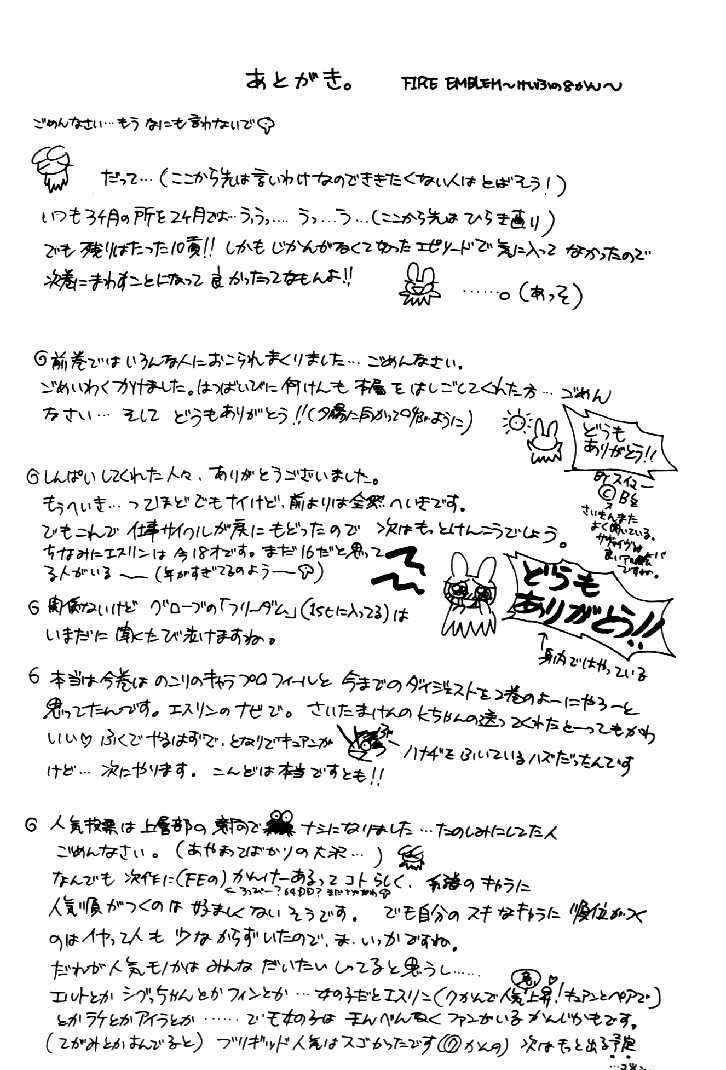 あとがき。 FIRE EMBLEM〜けいふの8かん〜
ごめんなさい…もうなにも言わないで
だって…(ここから先は言いわけなのでききたくない人はとばそう!)
いつも3ヶ月の所を2ヶ月では…うぅっ…. うっ…う…(ここから先はひらき直り)
でも残りはたった10頁!! しかもじかんがなくて エピソードで気に入ってなかったので
次巻にまわすことになって良かったってなもんよ!!
……。(あっそ)
前巻ではいろんな人におこられまくりました…ごめんなさい。
ごめいわくかけました。はつばいびに何けんも本屋をはしごしてくれた方…ごめん
なさい…そしてどうもありがとう!!(夕陽に向かって ように)
どうも
ありがとう!!
しんぱいしてくれた人々、ありがとうございました。
もうへいき…ってほどでもナイけど、前よりは全然へいきです。
でもこれで仕事サイクルが元にもどったので 次はもっとけんこうでしょう。
ちなみにエスリンは今18才です。まだ16だと思って
る人がいる〜(年がすぎてるのよう〜)
by スイマー
© B's
さいきんまた
よく 
どうも
ありがとう!!
↑身内ではやっている
関係ないけど グローブの「フリーダム」(1stに入ってる)は
いまだに聞くたび泣けますね。
本当は今巻はのこりのキャラプロフィールと今までのダイジェストを2巻のよーにやろーと
思ってたんです。エスリンのナビで。さいたまけんのKちゃんの送ってくれたとーってもかわ
いい♡ふくでやるはずで、となりでキュアンが
ハナヂをふいているハズだったんです
けど…次にやります。こんどは本当ですとも!!
人気投票は上層部の ナシになりました…たのしみにしてた人
ごめんなさい。(あやまってばかりの大沢…)
なんでも次作に(FEの)かんけーあるってコトらしく、 のキャラに
人気順がつくのは好ましくないそうです。でも自分のスキなキャラに順位がつく
のはイヤって人も少なからずいたので、ま、いっかですね。
だれが人気モノかはみんなだいたいしってると思うし……
エルトとかシグっちゃんとかフィンとか…女の子だとエスリン(7かんで人気急上昇!キュアンとペアで)
とかラケとかアイラとか……でも女の子はまんべんなくファンがいるかんじかもです。
(てがみとかよんでると)ブリギッド人気はスゴかったです(⑦かんの)次はもっと出る予定